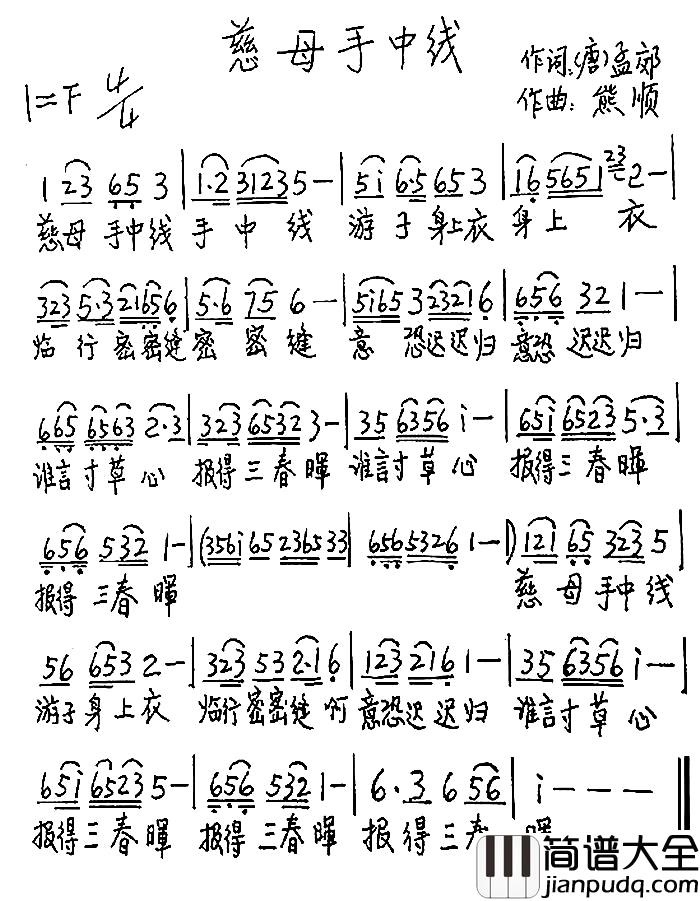 慈母手中线
作词:(唐)孟郊
作曲: 熊顺
1=F 4/4
1 23 65 3 | 1·2 31235 - | 5i 6·5 65 3 | 16 5651 23 2 - |
慈母 手中线 手 中 线 游 子 身上衣 身 上 衣
323 5·3 21656 | 5·6 75 6 - | 5i65 3 2321 6 | 656 32 1 - |
临 行 密密缝 密 密 缝 意 恐迟迟归 意恐 迟迟归
665 6563 2·3 | 323 6532 3 - | 35 6356 i - | 65i 6523 5·3 |
谁言寸草心 报得三春暉 谁言寸草心 报得三春暉
656 532 1 - | (3561 65 2365 33 | 656 5326 1 - ) | 121 65 323 5 |
报得三春暉 慈母手中线
56 653 2 - | 323 53 2·1 6 | 123 216 1 - | 35 6356 i - |
游子身上衣 临行密密缝 啊 意恐迟迟归 谁言寸草心
65i 6523 5 - | 656 532 1 - | 6·3 6 56 | i - - -
报得三春暉 报得三春暉 报得三春 暉
简谱大全
jianpudq.com